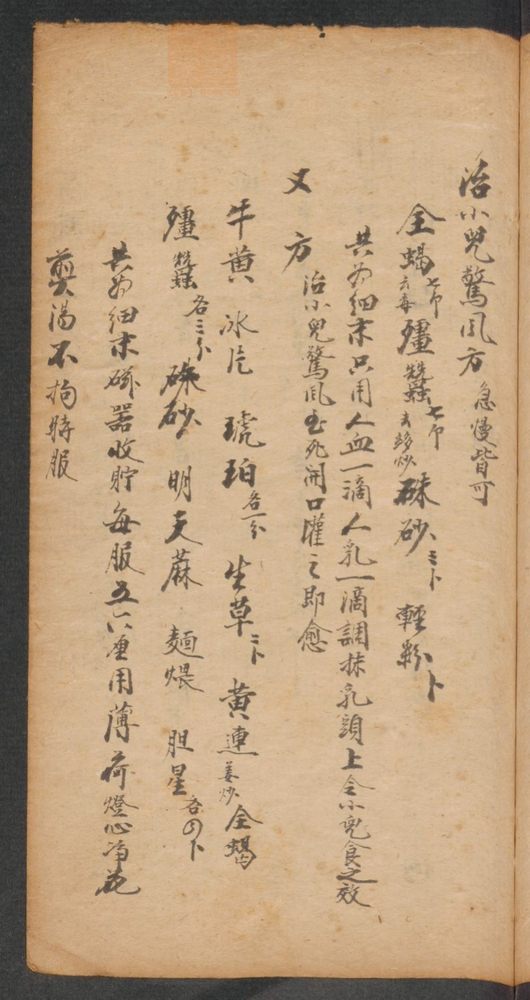 治小兒驚風方 急慢皆可
全蝎 去毒 殭蠶 去絲炒 硃砂 輕粉
共為細末只用人血一滴人乳一滴調抹乳頭上令小兒食之效
又方 治小兒驚風至死開口灌之即愈
牛黄 冰片 琥珀 各一分 生草 黄連 姜炒 全蝎
殭蠶 各三分 硃砂 明天蔴 麵煨 胆星
共為細末磁器收貯每服五六厘用薄荷燈心净花
煎湯不拘時服